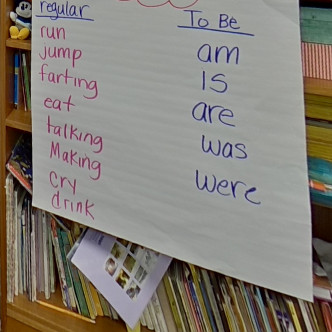 regular
run
jump
farting
eat
talking
Making
cry
drink
To Be
am
Is
are
was
were